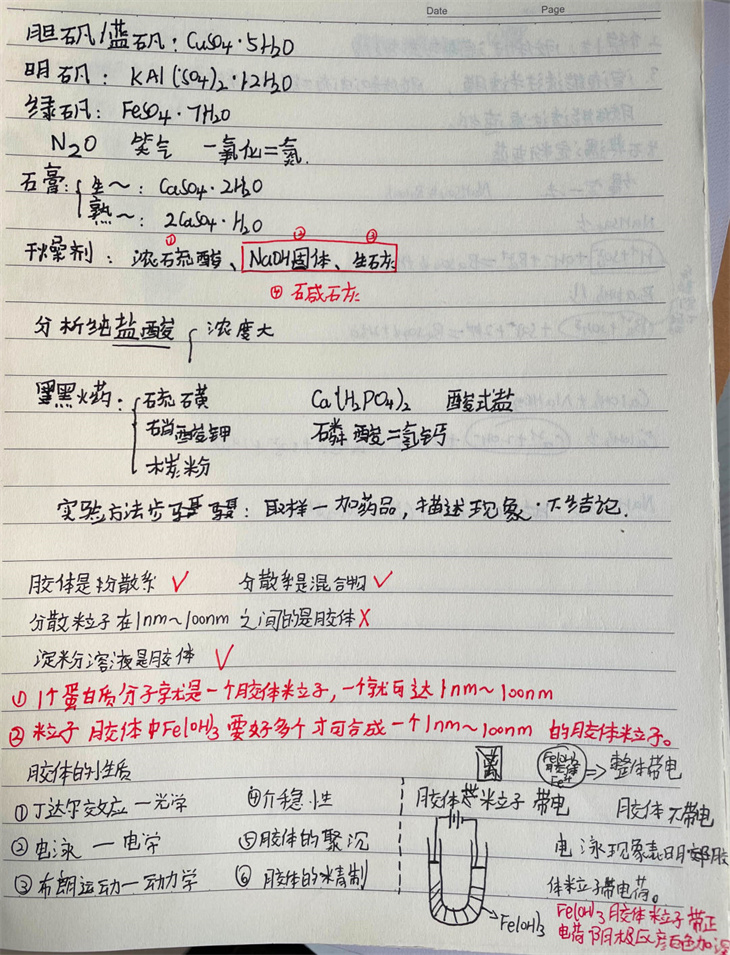 Date Page
胆矾/蓝矾：CuSO4·5H2O
明矾：KAl(SO4)2·12H2O
绿矾：FeSO4·7H2O
N2O 笑气 一氧化二氮.
石膏：{ 生～：CaSO4·2H2O
熟～：2CaSO4·H2O
① ② ③
干燥剂：浓硫酸、NaOH固体、生石灰
④ 碱石灰
分析纯盐酸 { 浓度大
黑火药：{ 硫磺 Ca(H2PO4)2 酸式盐
硝酸钾 磷酸二氢钙
木炭粉
实验方法步骤：取样—加药品，描述现象·下结论.
胶体是分散系 ✓ 分散系是混合物 ✓
分散粒子在1nm～100nm之间的是胶体 X
淀粉溶液是胶体 ✓
① 1个蛋白质分子就是一个胶体粒子，一个就可达1nm～100nm
② 粒子 胶体中Fe(OH)3要好多个才可合成一个1nm～100nm的胶体粒子。
胶体的性质
Fe(OH)3 胶体 => 整体带电
①丁达尔效应—光学 ④介稳性 胶体粒子带电 胶体不带电
②电泳—电学 ⑤胶体的聚沉 电泳现象表明胶
③布朗运动—动力学 ⑥胶体的精制 体粒子带电荷。
Fe(OH)3
Fe(OH)3胶体粒子带正
电荷 阴极区颜色加深